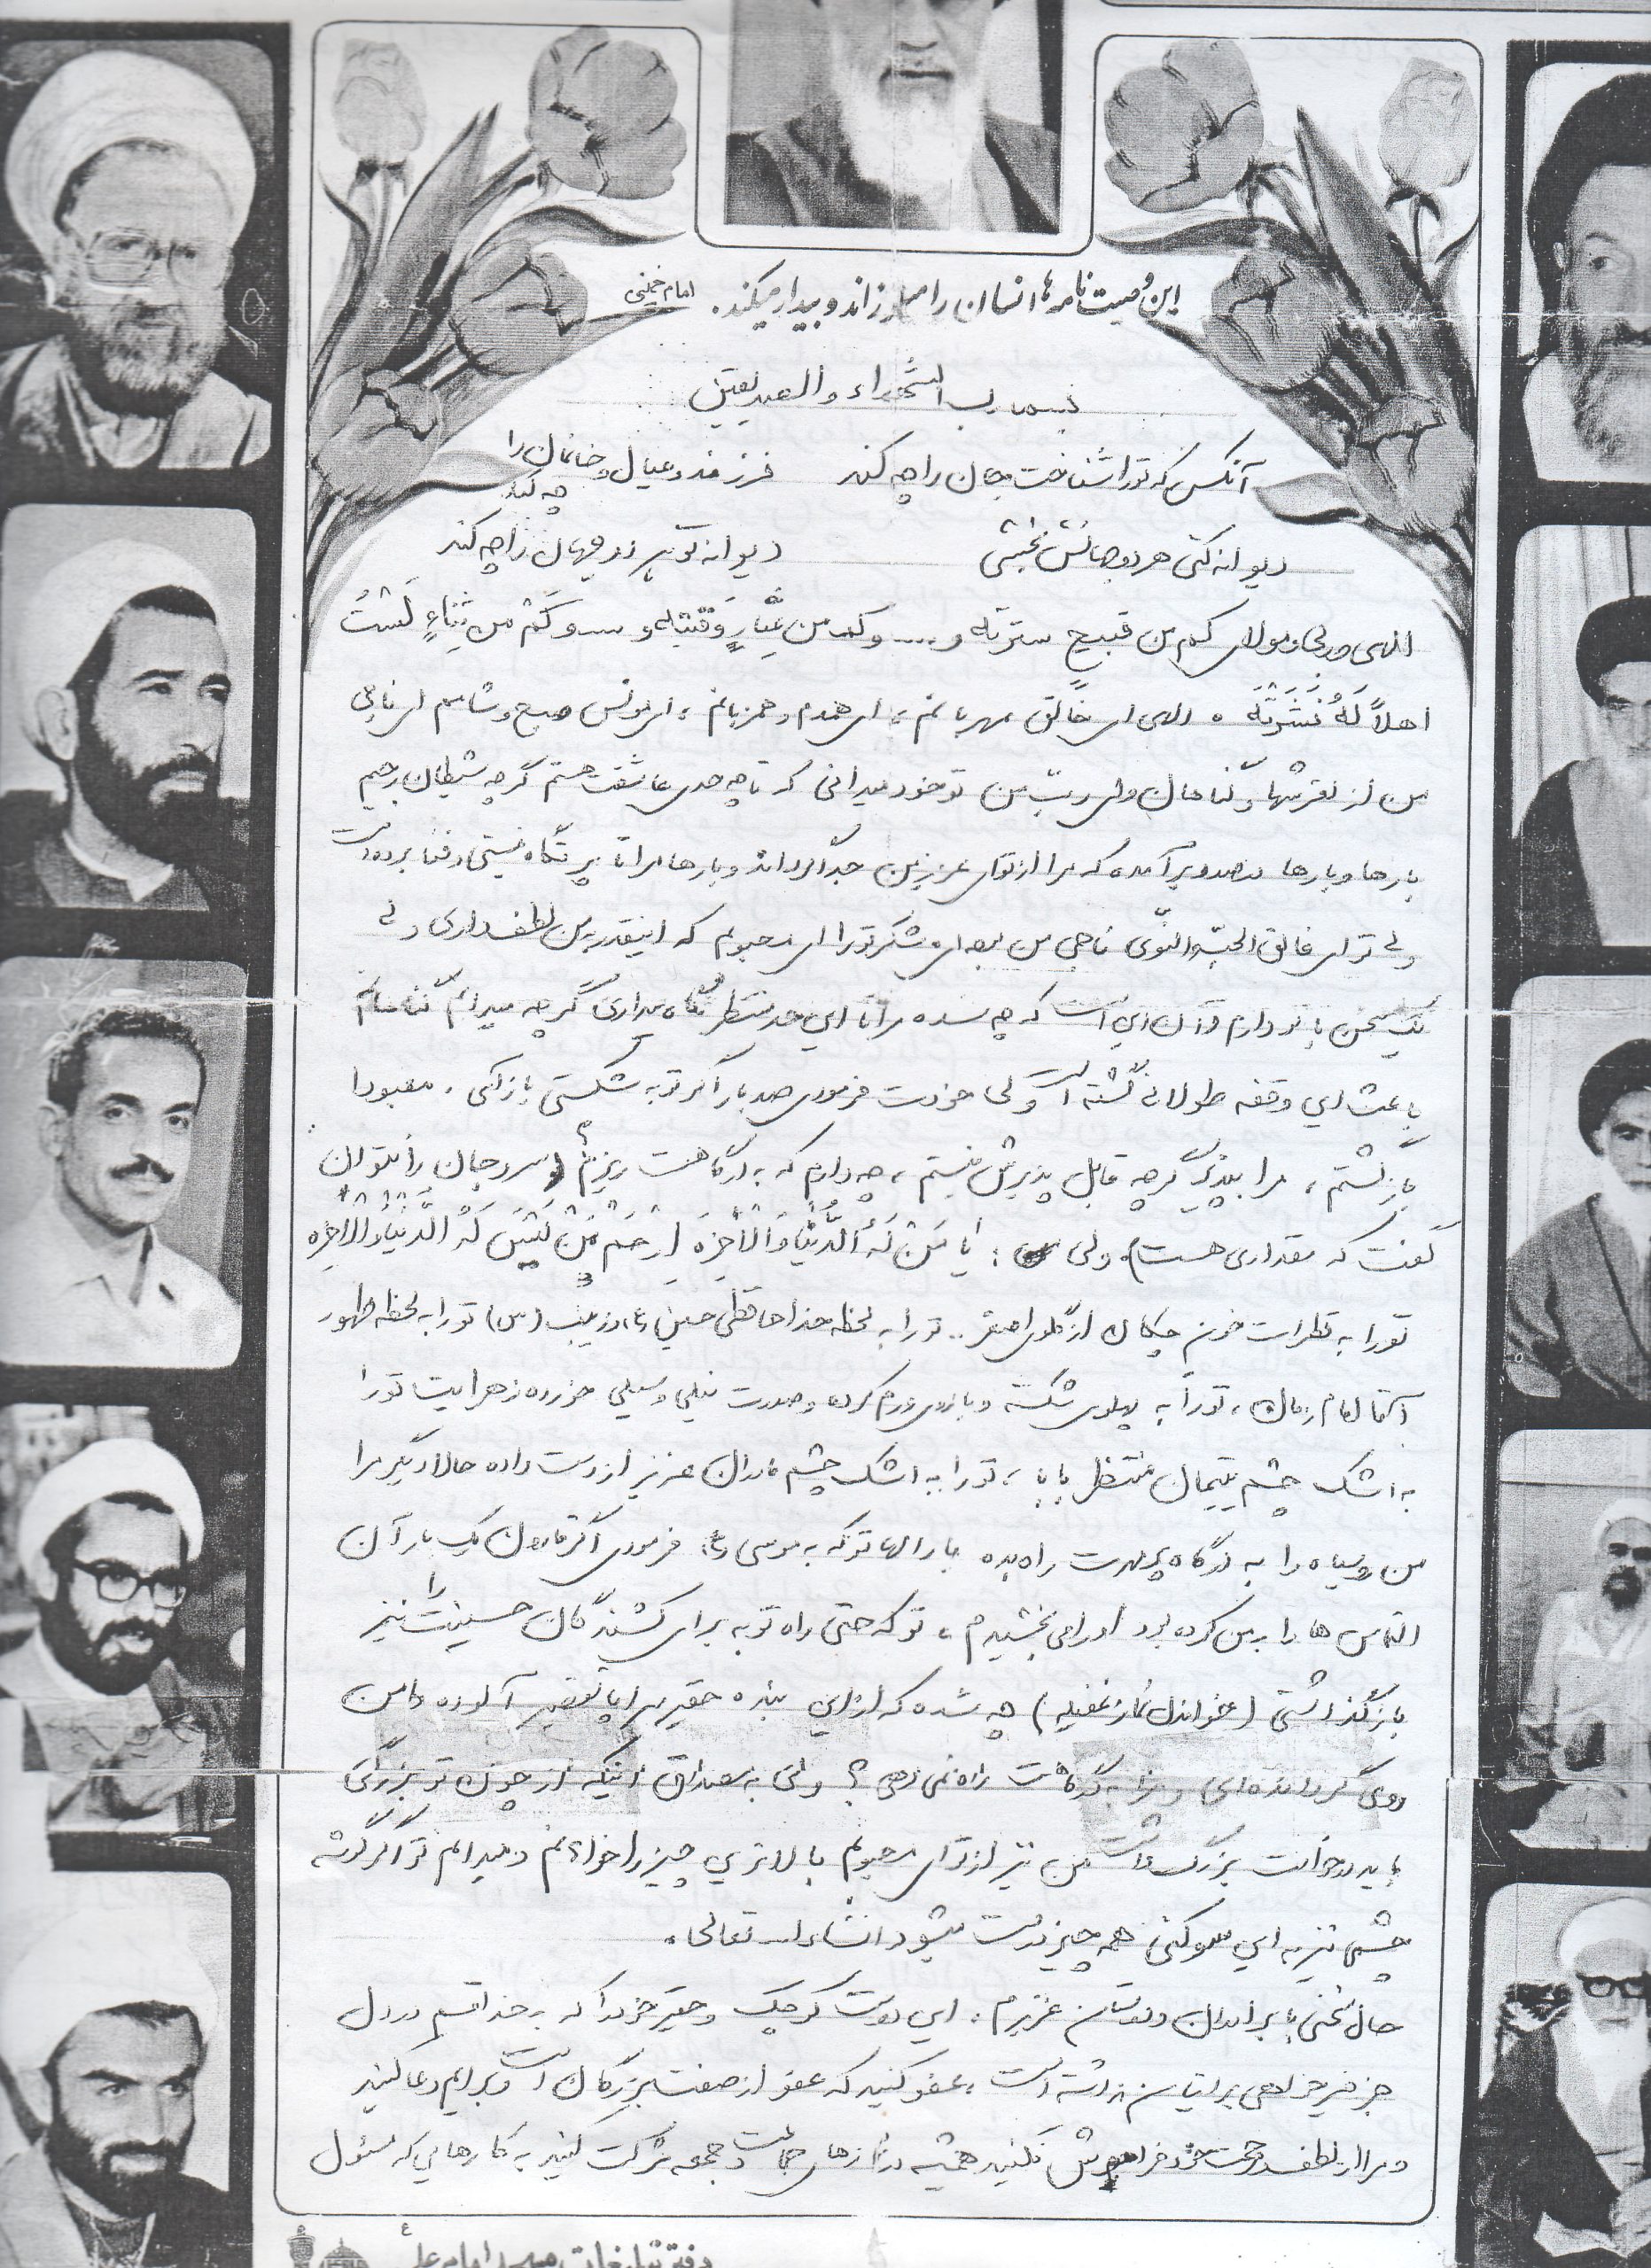 این وصیت نامه ها انسان را میلرزاند و بیدار میکند. امام خمینی
بسم رب الشهداء والصدیقین
آنکس که تو را شناخت جان را چه کند فرزند و عیال و خانمان را چه کند
دیوانه کنی هر دو جهانش بخشی دیوانه تو هر دو جهان را چه کند
الهی و ربی و مولای کم من قبیح سترته و .... و کم من وقیته و .... و کم من ثناءٍ لَستُ
اهلاً لَهُ نَشَرتَه . الهی ای خالق مهربانم ، ای همدم و همزبانم ، ای مونس صبح و شامم ای ناجی
من از لغزشها و گناهان ولی ربّ من تو خود میدانی که تا چه حد عاشقت هستم گرچه شیطان رجیم
بارها و بارها درصدد برآمده که مرا از تو ای عزیز من جدا گرداند و بارها مرا تا پرتگاه نیستی و فنا برده است
ولی تو ای فالق الحبّ والنّوی ناجی من بوده ای شکر تو را ای محبوبم که اینقدر به من لطف داری ولی
یک سخن با تو دارم و آن این است که چه شده مرا تا این حد منتظر نگاه میداری گرچه میدانم گناهانم
باعث این وقفه طولانی گشته است ولی خودت فرمودی صد بار اگر توبه شکستی بازآی . معبودا
بازگشتم ، مرا بپذیر گرچه قابل پذیرش نیستم ، چه دارم که به درگاهت ریزم ؟ (سر و جان را نتوان
گفت که مقداری هست) ولی : یا مَن لَهُ الدُّنیا وَالآخِرَه اِرحَم مَن لَیسَ لَهُ الدُّنیا وَالآخِره
تو را به قطرات خون چکان از گلوی اصغر .. تو را به لحظه خداحافظی حسین (ع) و زینب (س) تو را به لحظه ظهور
آقا امام زمان ، تو را به پهلوی شکسته و بازوی ورم کرده و صورت نیلی و سیلی خورده زهرایت تو را
به اشک چشم یتیمان منتظر بابا ، تو را به اشک چشم مادران عزیز از دست داده حالا دیگر مرا
من روسیاه را به درگاه پر مهرت راه بده بارالها تو که به موسی (ع) فرمودی اگر قارون یک بار آن
التماس ها را به من کرده بود او را می بخشیدم ، تو که حتی راه توبه برای کشندگان حسینت را نیز
بازگذاشتی (خواندن نماز غفیله) چه شده که از این بنده حقیر سراپا تقصیر آلوده دامن
روی گردانده ای و مرا به درگاهت راه نمی دهی ؟ ولی به مصداق اینکه از چون تو بزرگی
باید درخواست بزرگ داشت من نیز از تو ای محبوبم بالاترین چیز را خواهانم و میدانم تو اگر گوشه
چشمی نیز به این سو کنی همه چیز درست میشود انشاءا... تعالی .
حال سخنی با برادران و دوستان عزیزم ، این دوست کوچک و حقیر خود را که به خدا قسم در دل
جز خیرخواهی برایتان نداشته است ، عفو کنید که عفو از صفت بزرگان است و برایم دعا کنید
و مرا از لطف و رحمت خود فراموش نکنید همیشه در نمازهای جماعت و جمعه شرکت کنید به کارهایی که مسئول
دفتر تبلیغات مسجد امام علی ع